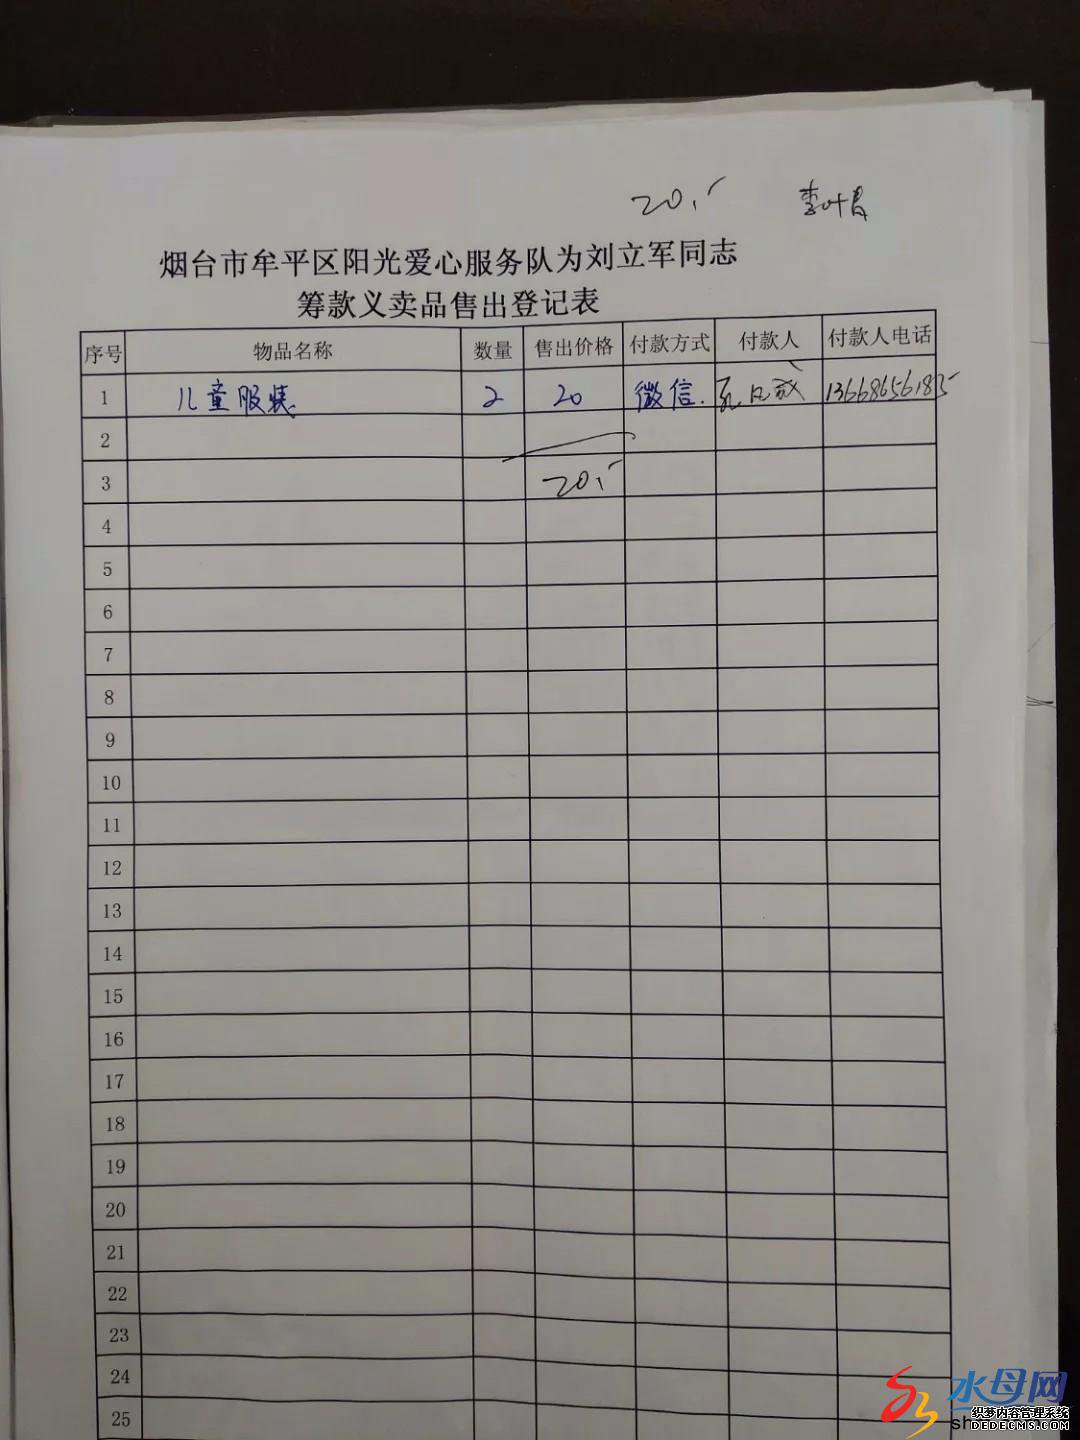 20.-
烟台市牟平区阳光爱心服务队为刘立军同志
筹款义卖品售出登记表
序号 物品名称 数量 售出价格 付款方式 付款人 付款人电话
1 儿童服装 2 20 微信. 13668656185
2
3 20.-
4
5
6
7
8
9
10
11
12
13
14
15
16
17
18
19
20
21
22
23
24
25
水母网
织梦内容管理系统
DEDECMS.COM